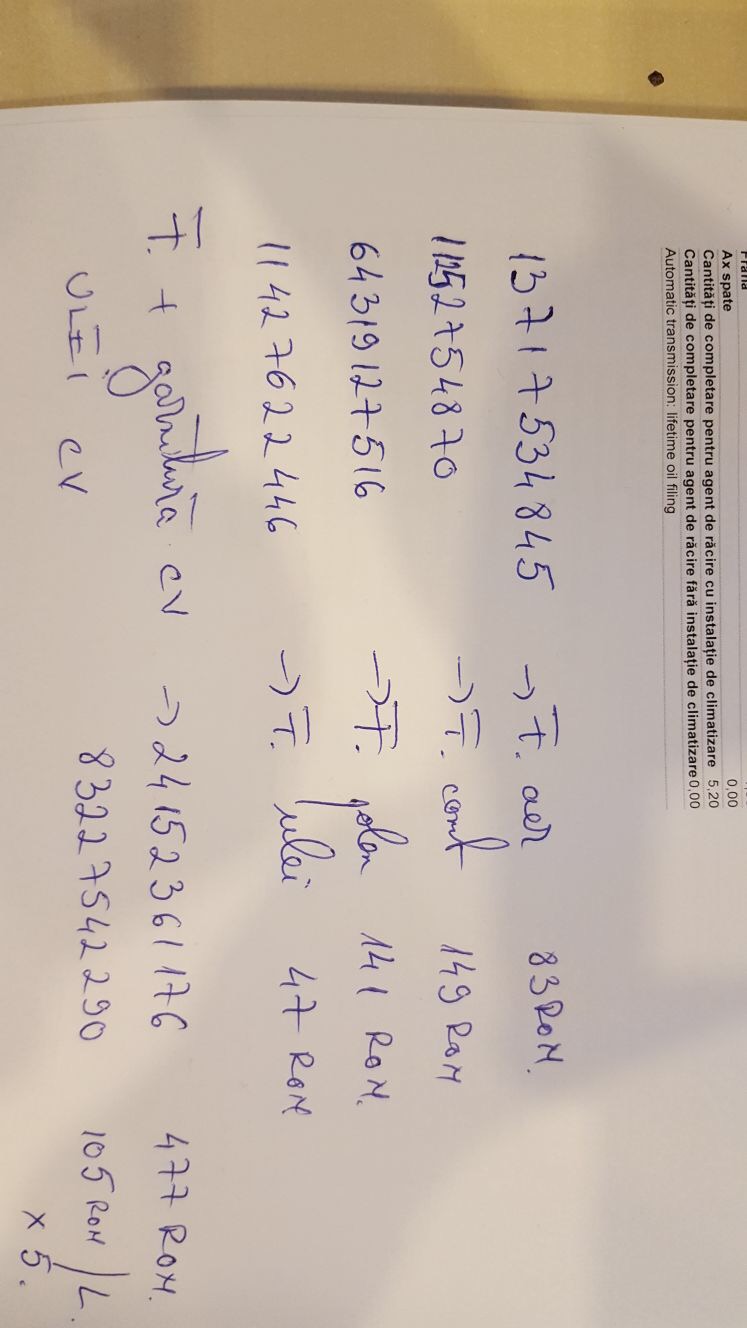 Ax spate 0,00
Cantități de completare pentru agent de răcire cu instalație de climatizare 5,20
Cantități de completare pentru agent de răcire fără instalație de climatizare 0,00
Automatic transmission: lifetime oil filing
13717534845 → F. aer 83 RON.
11252754870 → F. comb 149 RON
64319127516 → F. polen 141 RON.
11427622446 → F. ulei 47 RON
F. + garnitură CV → 24152361176 477 RON.
ULEI CV 83227542290 105 RON/L.
x 5.